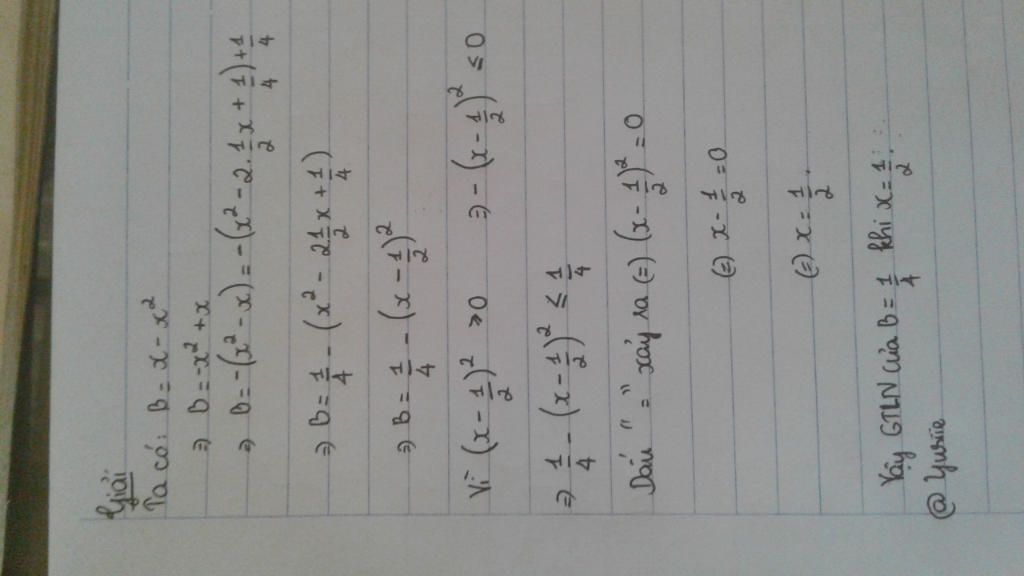 Giải
Ta có: B = x - x²
⇒ B = -x² + x
⇒ B = -(x² - x) = -(x² - 2.1/2x + 1/4) + 1/4
⇒ B = 1/4 - (x² - 2 1/2x + 1/4)
⇒ B = 1/4 - (x - 1/2)²
Vì (x - 1/2)² ≥ 0 ⇒ -(x - 1/2)² ≤ 0
⇒ 1/4 - (x - 1/2)² ≤ 1/4
Dấu "=" xảy ra (=) (x - 1/2)² = 0
(=) x - 1/2 = 0
(=) x = 1/2.
Vậy GTLN của B = 1/4 khi x = 1/2.
@ Yurie